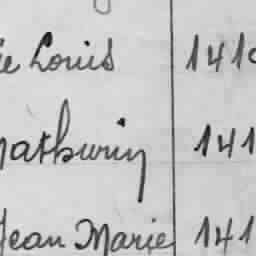 ie Louis 141
Mathurin 141
Jean Marie 141